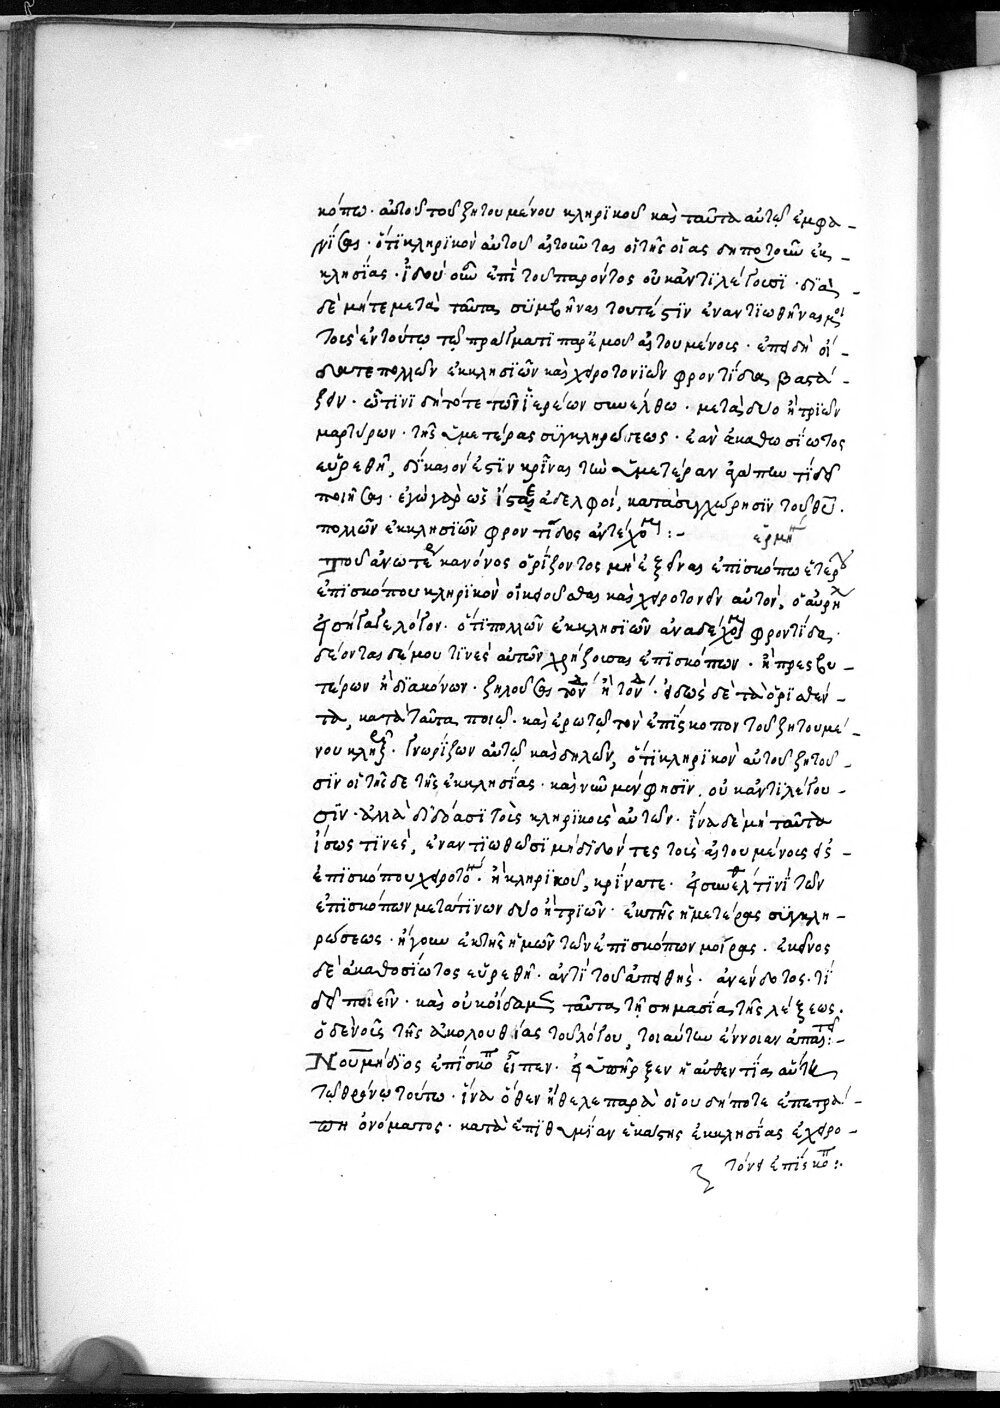 κόπω· αὐτοῦ τοῦ ζητουμένου κληρικοῦ καὶ ταῦτα αὐτῷ ἐμφα-
νίσαι· ὅτι κληρικὸν αὐτοῦ αἰτοῦνται οἱ τῆς οἵας δήποτοῦν ἐκ-
κλησίας· ἰδοὺ οὖν ἐπὶ τοῦ παρόντος οὐκ ἀντιλέγουσι· διὰ
δὲ μήτε μετὰ ταῦτα συμβῆναι τουτέστιν ἐναντιωθῆναί μοι
τοῖς ἐν τούτῳ τῷ πράγματι παρ' ἐμοῦ αἰτουμένοις· ἐπειδὴ οἴ-
δατε πολλῶν ἐκκλησιῶν καὶ χειροτονιῶν φροντίδα βαστά-
ζειν· ᾧτινι δήποτε τῶν ἱερέων συνέλθω· μετὰ δύο ἢ τριῶν
μαρτύρων· τῆς ὑμετέρας συγκληρώσεως· ἐὰν ἀκαθωσίωτος
εὑρεθῇ, δίκαιον ἐστὶν κρῖναι τὴν ὑμετέραν ἀγάπην τί δεῖ
ποιῆσαι· ἐγὼ γὰρ ὡς ἴστε ἀδελφοί, κατὰ συγχώρησιν τοῦ θυ·
πολλῶν ἐκκλησιῶν φροντίδος ἀντέχομ :- ἑρμη
Τοῦ ἀνωτέρου κανόνος ὁρίζοντος μὴ ἐξεῖναι ἐπισκόπω ἑτέρου
ἐπισκόπου κληρικὸν οἰκειοῦσθαι καὶ χειροτονεῖν αὐτόν, ὁ αὐρη
φησὶ γε λόγον· ὅτι πολλῶν ἐκκλησιῶν ἀναδέχομαι φροντίδα·
δέονται δέ μου τινὲς αὐτῶν χρήζουσαι ἐπισκόπων· ἢ πρεσβυ-
τέρων ἢ διακόνων· ζηλοῦσαι τόνδε ἢ τόνδε· εἰδὼς δὲ τὰ ὁρισθέν-
τα, κατὰ ταῦτα ποιῶ· καὶ ἐρωτῶ τὸν ἐπίσκοπον τοῦ ζητουμέ-
νου κληρ· γνωρίζων αὐτῷ καὶ δηλῶν, ὅτι κληρικὸν αὐτοῦ ζητοῦ-
σιν οἱ τῆς δε τῆς ἐκκλησίας· καὶ νῦν μὲν φησὶν, οὐκ ἀντιλέγου-
σιν· ἀλλὰ διδόασι τοὺς κληρικοὺς αὐτῶν· ἵνα δὲ μὴ ταῦτα
ἴσως τινές, ἐναντιωθῶσι μὴ διδόντες τοὺς αἰτουμένους εἰς
ἐπισκόπου χειροτο· ἢ κληρικοῦ, κρίνατε· ᾧ συνέλθ τινὶ τῶν
ἐπισκόπων μετά τινων δύο ἢ τριῶν· ἐκ τῆς ἡμετέρας συγκλη-
ρώσεως· ἤγουν ἐκ τῆς ἡμῶν τῶν ἐπισκόπων μοίρας· ἐκεῖνος
δὲ ἀκαθοσίωτος εὑρεθῇ· ἀντὶ τοῦ ἀπειθὴς· ἀνένδοτος· τί
δεῖ ποιεῖν· καὶ οὐκ οἶδαμεν ταῦτα τῇ σημασία τῆς λέξεως·
ὁ δὲ νοῦς τῆς ἀκολουθίας τοῦ λόγου, τοιαύτην ἔννοιαν ἀπαιτεῖ:-
Νουμήδιος ἐπίσκοπ εἶπεν· ᾧ ὑπῆρξεν ἡ αὐθεντία αὕτη
τῷ θρόνῳ τούτω· ἵνα ὅθεν ἤθελε παρὰ οἵου δήποτε ἐπετρά-
πη ὀνόματος· κατὰ ἐπιθυμίαν ἑκάστης ἐκκλησίας ἐχειρο-
τόνει ἐπίσκοπ :·